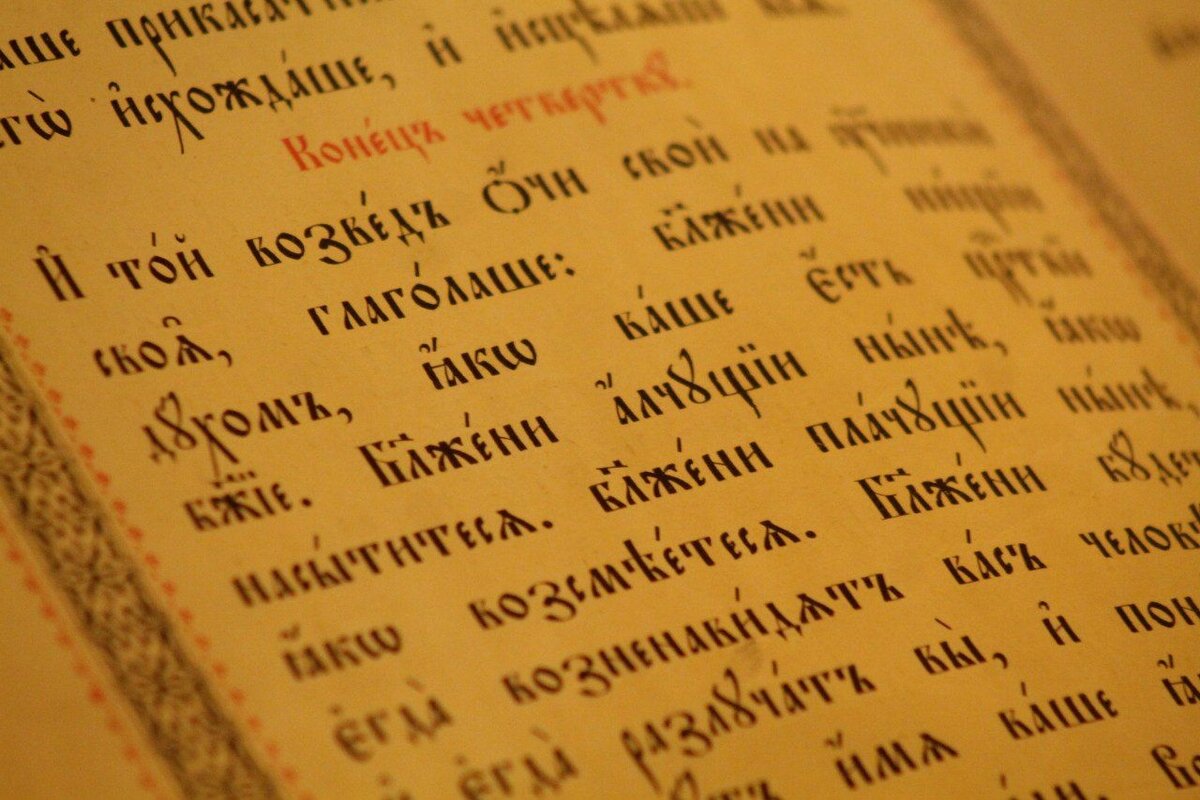 аше
гѡ̀ и҆схожда́ше, и҆ и҆сцѣлѧ́ше
Коне́цъ четверткꙋ̀.
И҆ то́й возве́дъ Ѻ҆́чи своѝ на
своѧ̑, глаго́лаше: бл҃же́ни ни́щїи
дꙋ́хомъ, ꙗ҆́кѡ ва́ше є҆́сть црⷭ҇твїе
бж҃їе. Бл҃же́ни а҆́лчꙋщїи ны́нѣ, ꙗ҆́кѡ
насы́титесѧ. бл҃же́ни пла́чꙋщїи ны́нѣ,
ꙗ҆́кѡ возсмѣе́тесѧ. Бл҃же́ни бꙋ́дет
є҆гда̀ возненави́дѧтъ ва́съ человѣ
и҆ є҆гда̀ разлꙋча́тъ вы̀, и҆ пон
и҆́мѧ ва́ше